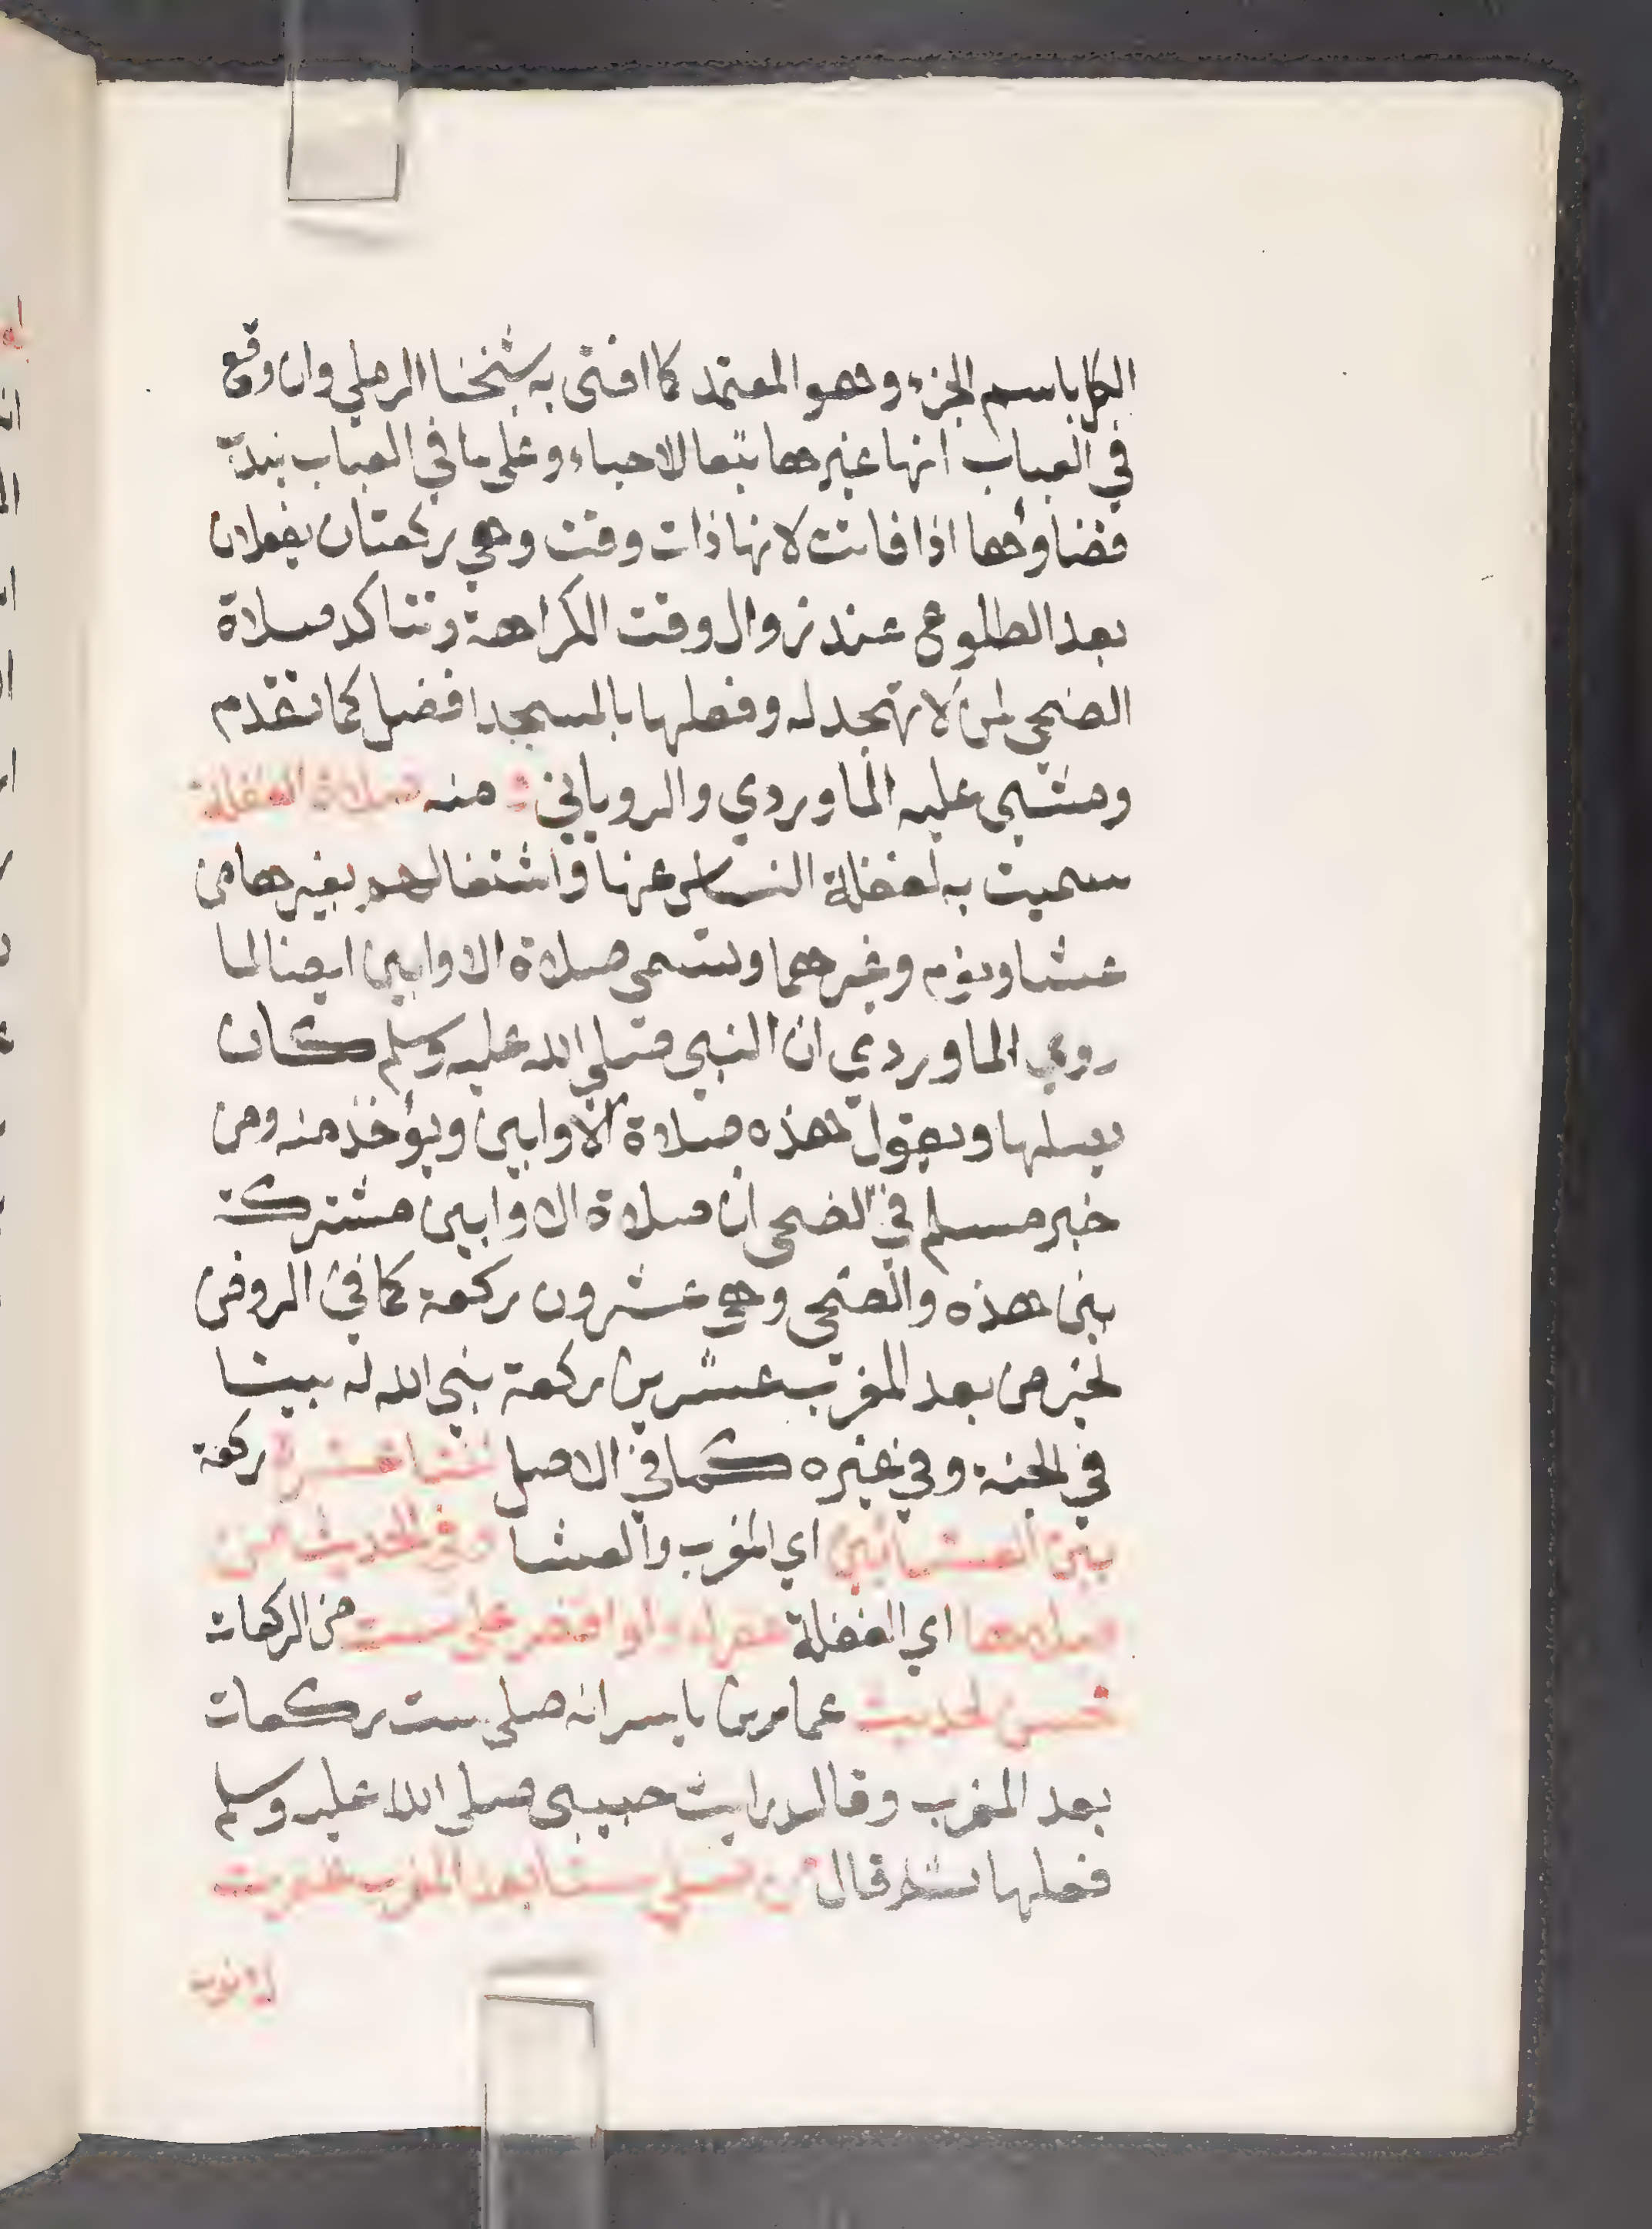 الكل باسم الجزء وهو المعتمد كما افتى به شيخنا الرملي وان وقع
في العباب انها غيرها تبعا للاحياء وعلى ما في العباب يندب
قضاؤها اذا فاتت لانها ذات وقت وهي ركعتان يفعلان
بعد الطلوع عند زوال وقت الكراهة وتتاكد صلاة
الضحى لمن لا تهجد له وفعلها بالمسجد افضل كما تقدم
ومشى عليه الماوردي والروياني و منه صلاة الغفلة
سميت به لغفلة الناس عنها واشتغالهم بغيرها من
عشا ونوم وغيرهما وتسمى صلاة الاوابين ايضا لما
روى الماوردي ان النبي صلى الله عليه وسلم كان
يصليها ويقول هذه صلاة الاوابين ويؤخذ منه ومن
خبر مسلم في الضحى ان صلاة الاوابين مشتركة
بين هذه والضحى وهي عشرون ركعة كما في الروض
لخبر من بعد المغرب عشرين ركعة بنى الله له بيتا
في الجنة وفي غيره كما في الاصل ثنتا عشرة ركعة
بين العشائين اي المغرب والعشا وفي الحديث من
صلاها اي الغفلة غفر له ولو اقتصر على ست من الركعات
حسن لحديث عمار بن ياسر انه صلى ست ركعات
بعد المغرب وقال رايت حبيبي صلى الله عليه وسلم
فعلها ثم قال من صلى ستا بعد المغرب غفرت
له ذنوبه